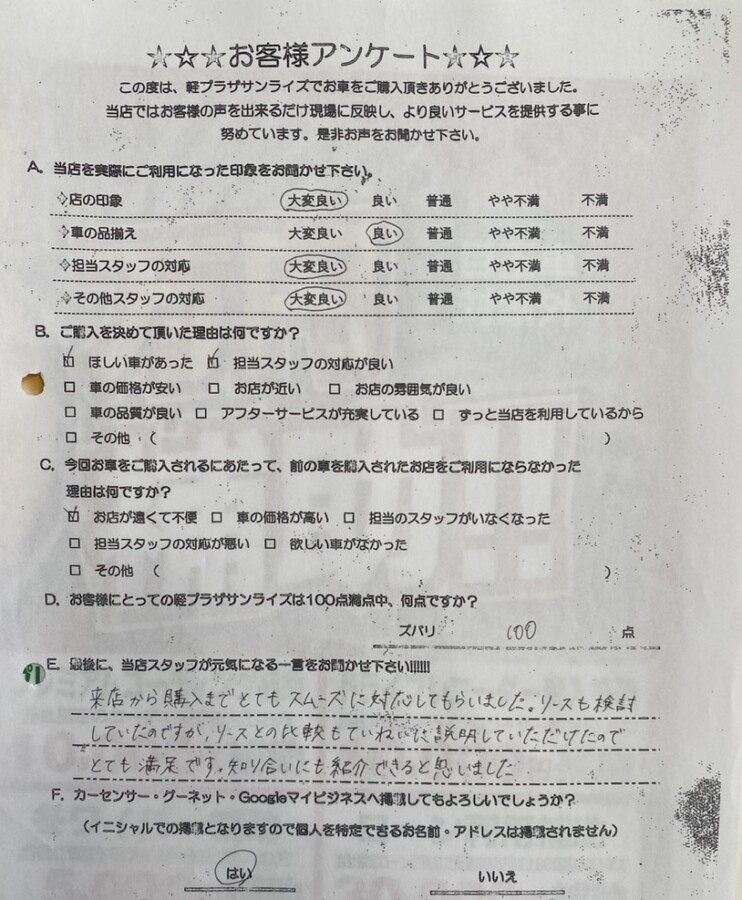 ☆☆☆お客様アンケート☆☆☆
この度は、軽プラザサンライズでお車をご購入頂きありがとうございました。
当店ではお客様の声を出来るだけ現場に反映し、より良いサービスを提供する事に
努めています。是非お声をお聞かせ下さい。
A. 当店を実際にご利用になった印象をお聞かせ下さい。
◇店の印象 大変良い 良い 普通 やや不満 不満
◇車の品揃え 大変良い 良い 普通 やや不満 不満
◇担当スタッフの対応 大変良い 良い 普通 やや不満 不満
◇その他スタッフの対応 大変良い 良い 普通 やや不満 不満
B. ご購入を決めて頂いた理由は何ですか？
☑ ほしい車があった ☑ 担当スタッフの対応が良い
□ 車の価格が安い □ お店が近い □ お店の雰囲気が良い
□ 車の品質が良い □ アフターサービスが充実している □ ずっと当店を利用しているから
□ その他 （ ）
C. 今回お車をご購入されるにあたって、前の車を購入されたお店をご利用にならなかった
理由は何ですか？
☑ お店が遠くて不便 □ 車の価格が高い □ 担当のスタッフがいなくなった
□ 担当スタッフの対応が悪い □ 欲しい車がなかった
□ その他 （ ）
D. お客様にとっての軽プラザサンライズは100点満点中、何点ですか？
ズバリ 100 点
E. 最後に、当店スタッフが元気になる一言をお聞かせ下さい!!!!!!
来店から購入までとてもスムーズに対応してもらいました。リースも検討
していたのですが、リースとの比較もていねいに説明していただけたので
とても満足です。知り合いにも紹介できると思いました
F. カーセンサー・グーネット・Googleマイビジネスへ掲載してもよろしいでしょうか？
（イニシャルでの掲載となりますので個人を特定できるお名前・アドレスは掲載されません）
はい いいえ